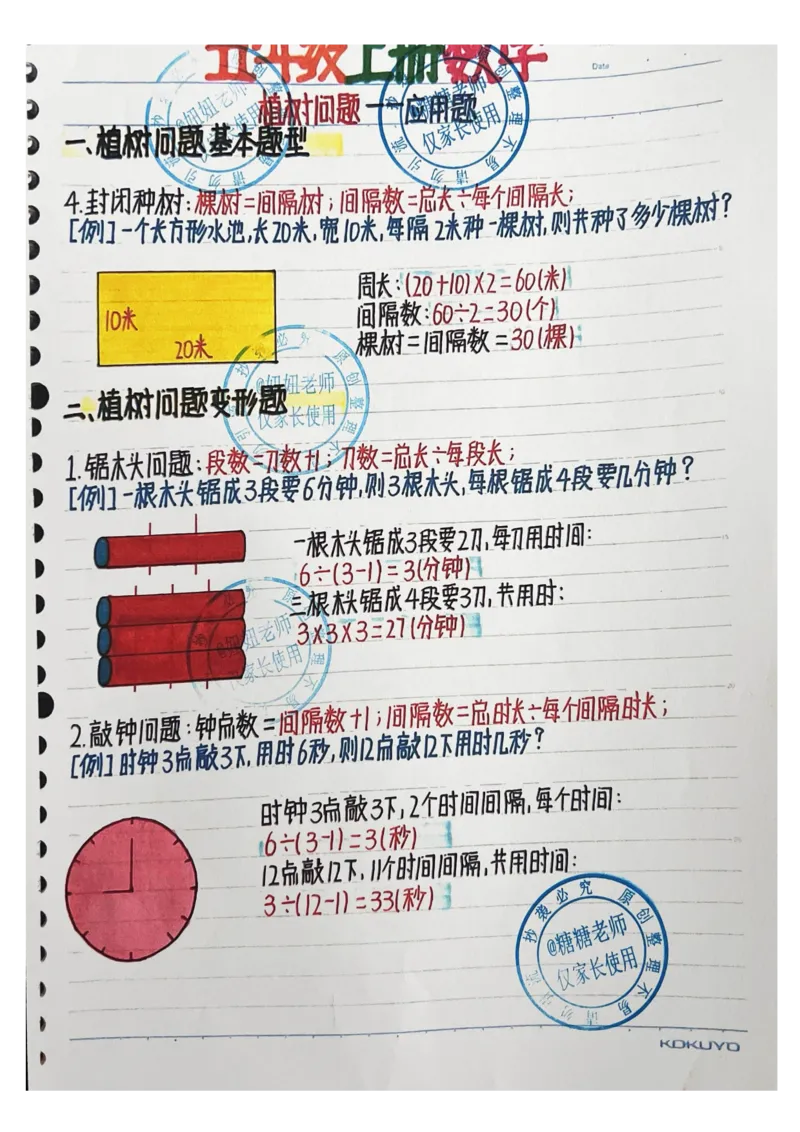 五年级上册数学
Date
植树问题——应用题
一、植树问题基本题型
4.封闭种树:棵树=间隔树;间隔数=总长÷每个间隔长;
[例]一个长方形水池,长20米,宽10米,每隔2米种一棵树,则共种了多少棵树?
10米
20米
周长:(20+10)×2=60(米)
间隔数:60÷2=30(个)
棵树=间隔数=30(棵)
二、植树问题变形题
1.锯木头问题:段数=刀数+1;刀数=总长÷每段长;
[例]一根木头锯成3段要6分钟,则3根木头,每根锯成4段要几分钟?
一根木头锯成3段要2刀,每刀用时间:
6÷(3-1)=3(分钟)
三根木头锯成4段要3刀,共用时:
3×3×3=27(分钟)
2.敲钟问题:钟点数=间隔数+1;间隔数=总时长÷每个间隔时长;
[例]时钟3点敲3下,用时6秒,则12点敲12下用时几秒?
时钟3点敲3下,2个时间间隔,每个时间:
6÷(3-1)=3(秒)
12点敲12下,11个时间间隔,共用时间:
3÷(12-1)=33(秒)
@妞妞老师
仅家长使用
@糖糖老师
仅家长使用
抄袭必究 原创整理不易请勿引流
KOKUYO